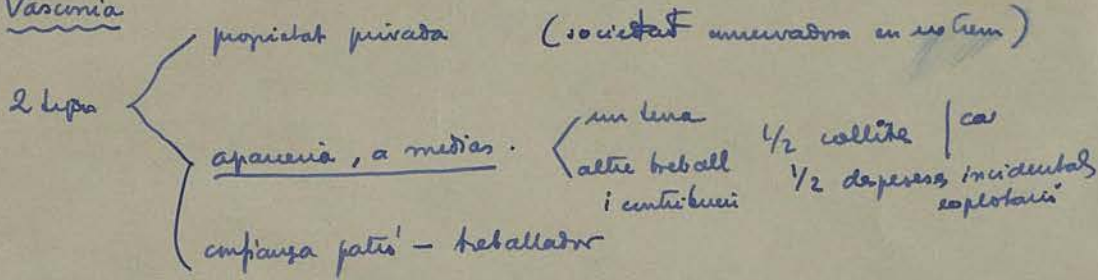 Vasconia
propietat privada (societat conservadora en extrem)
2 tipus
aparceria, a medias.
un terra
altre treball
i contribució
1/2 collita
1/2 despeses incidentals
explotació
confiança patró - treballador